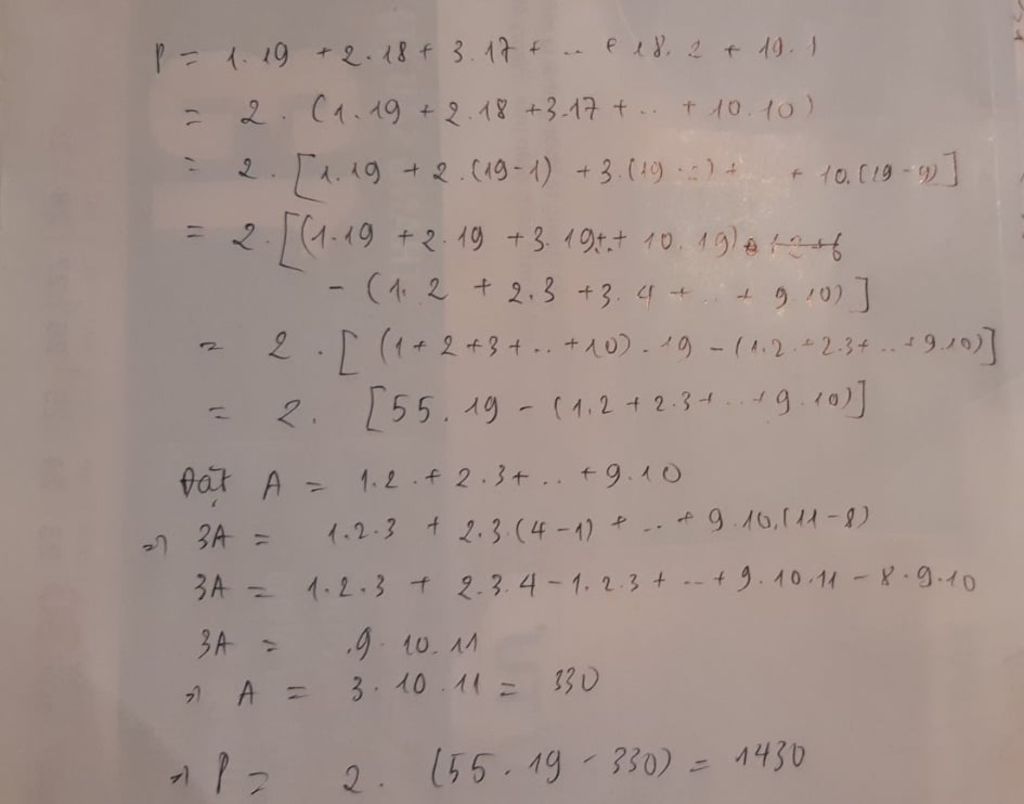 P = 1.19 + 2.18 + 3.17 + .. + 18.2 + 19.1
= 2. (1.19 + 2.18 + 3.17 + .. + 10.10)
= 2. [1.19 + 2.(19-1) + 3.(19-2) + + 10.(19-9)]
= 2. [(1.19 + 2.19 + 3.19 + .. + 10.19)
- (1.2 + 2.3 + 3.4 + .. + 9.10)]
= 2. [(1+2+3+..+10).19 - (1.2+2.3+..+9.10)]
= 2. [55.19 - (1.2 + 2.3 + .. + 9.10)]
Đặt A = 1.2 + 2.3 + .. + 9.10
=> 3A = 1.2.3 + 2.3.(4-1) + .. + 9.10.(11-8)
3A = 1.2.3 + 2.3.4 - 1.2.3 + .. + 9.10.11 - 8.9.10
3A = 9.10.11
=> A = 3.10.11 = 330
=> P = 2. (55.19 - 330) = 1430